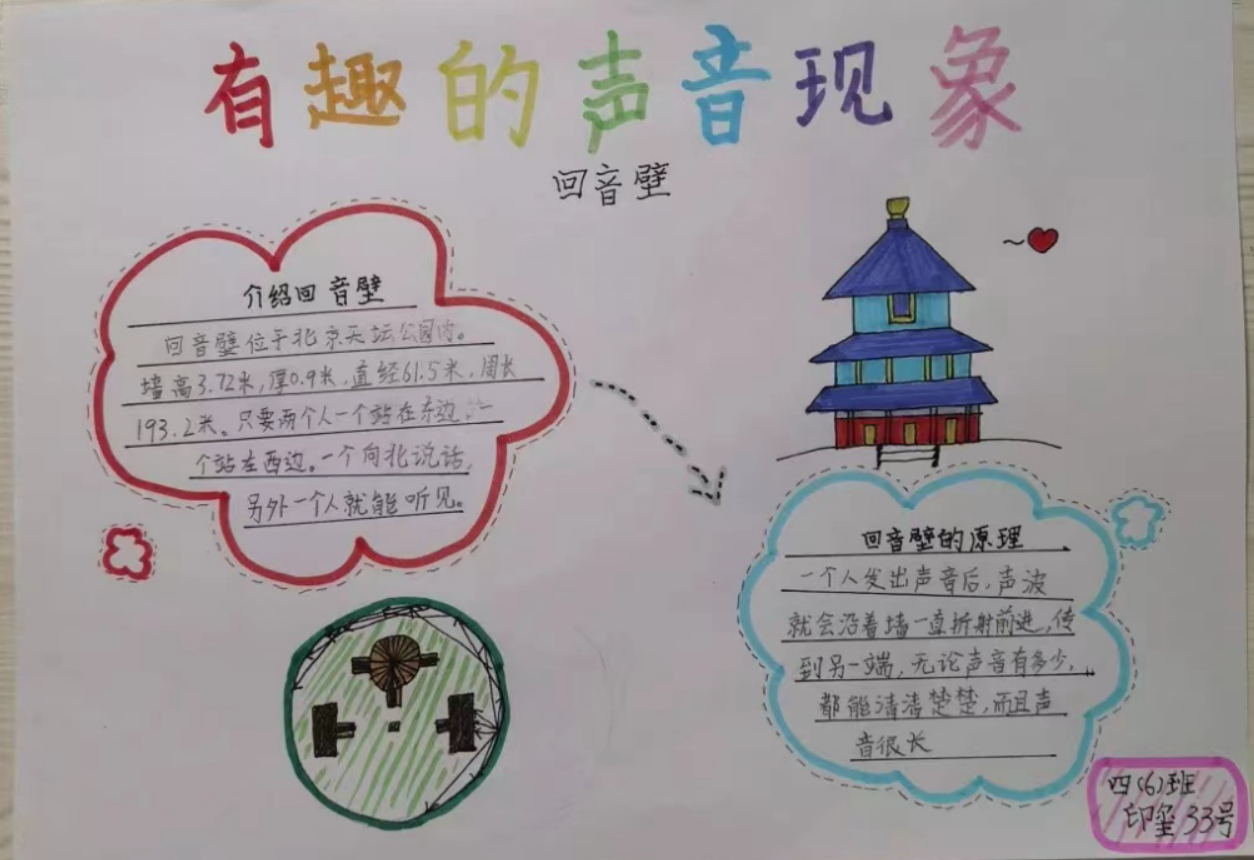 有趣的声音现象
回音壁
介绍回音壁
回音壁位于北京天坛公园内。
墙高3.72米,厚0.9米,直经61.5米,周长
193.2米。只要两个人一个站在东边,一
个站在西边。一个向北说话,
另外一个人就能听见。
回音壁的原理
一个人发出声音后,声波
就会沿着墙一直折射前进,传
到另一端,无论声音有多少,
都能清清楚楚,而且声
音很长
四(6)班
印玺33号